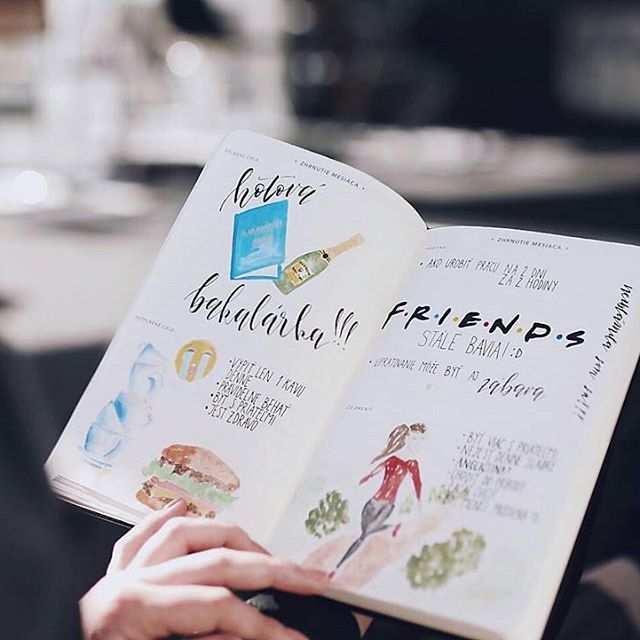 SPLNENÉ CIELE
• ZHRNUTIE MESIACA •
hotová
bakalárka!!!
NESPLNENÉ CIELE
• VYPIŤ LEN 1 KAVU
DENNE
• PRAVIDELNE BEHAŤ
• BYŤ S PRIATEĽMI
• JESŤ ZDRAVO
• ZHRNUTIE MESIACA •
• AKO UROBIŤ PRÁCU NA 2 DNI
ZA 2 HODINY
F•R•I•E•N•D•S
STÁLE BAVIA! :D
• UPRATOVANIE MÔŽE BYŤ AJ
zábava
ZMENIŤ
• BYŤ VIAC S PRIATEĽMI
• NEJESŤ DENNE SLADKÉ
• ANGLIČTINA!